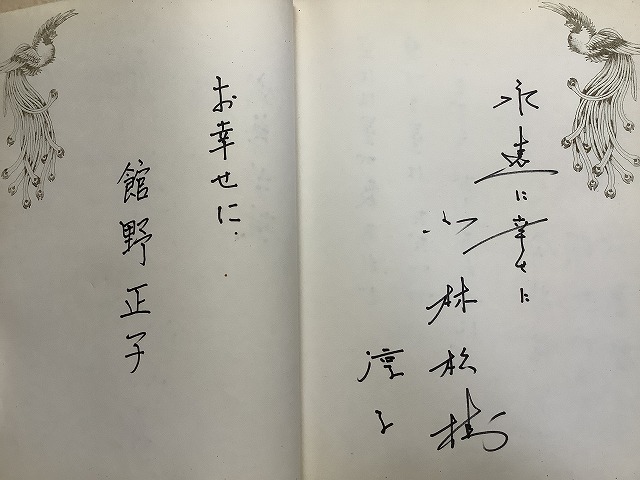 永遠に幸せに
小林松樹
淳子
お幸せに.
館野正子